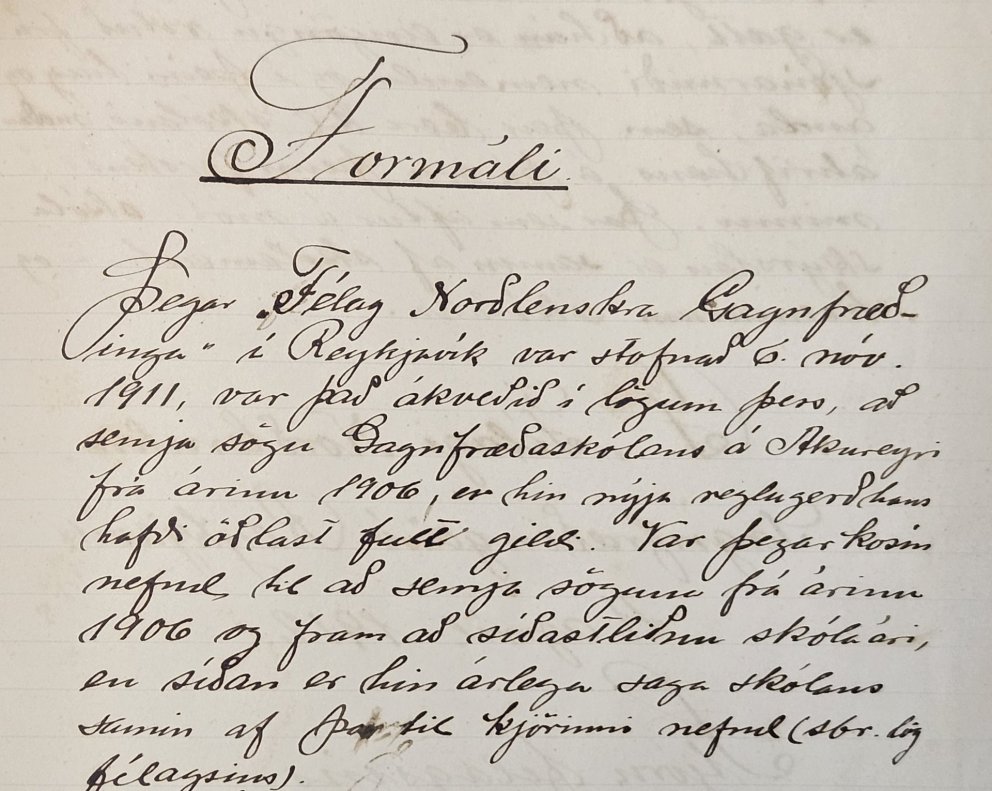 Formáli.
Þegar „Félag Norðlenskra Gagnfræð-
inga" í Reykjavík var stofnað 6. nóv.
1911, var það ákveðið í lögum þess, að
semja sögu Gagnfræðaskólans á Akureyri
frá árinu 1906, er hin nýja reglugerð hans
hafði öðlast fullt gildi. Var þegar kosin
nefnd til að semja söguna frá árinu
1906 og fram að síðastliðnu skólaári,
en síðan er hin árlega saga skólans
samin af þar til kjörinni nefnd (sbr. lög
félagsins).